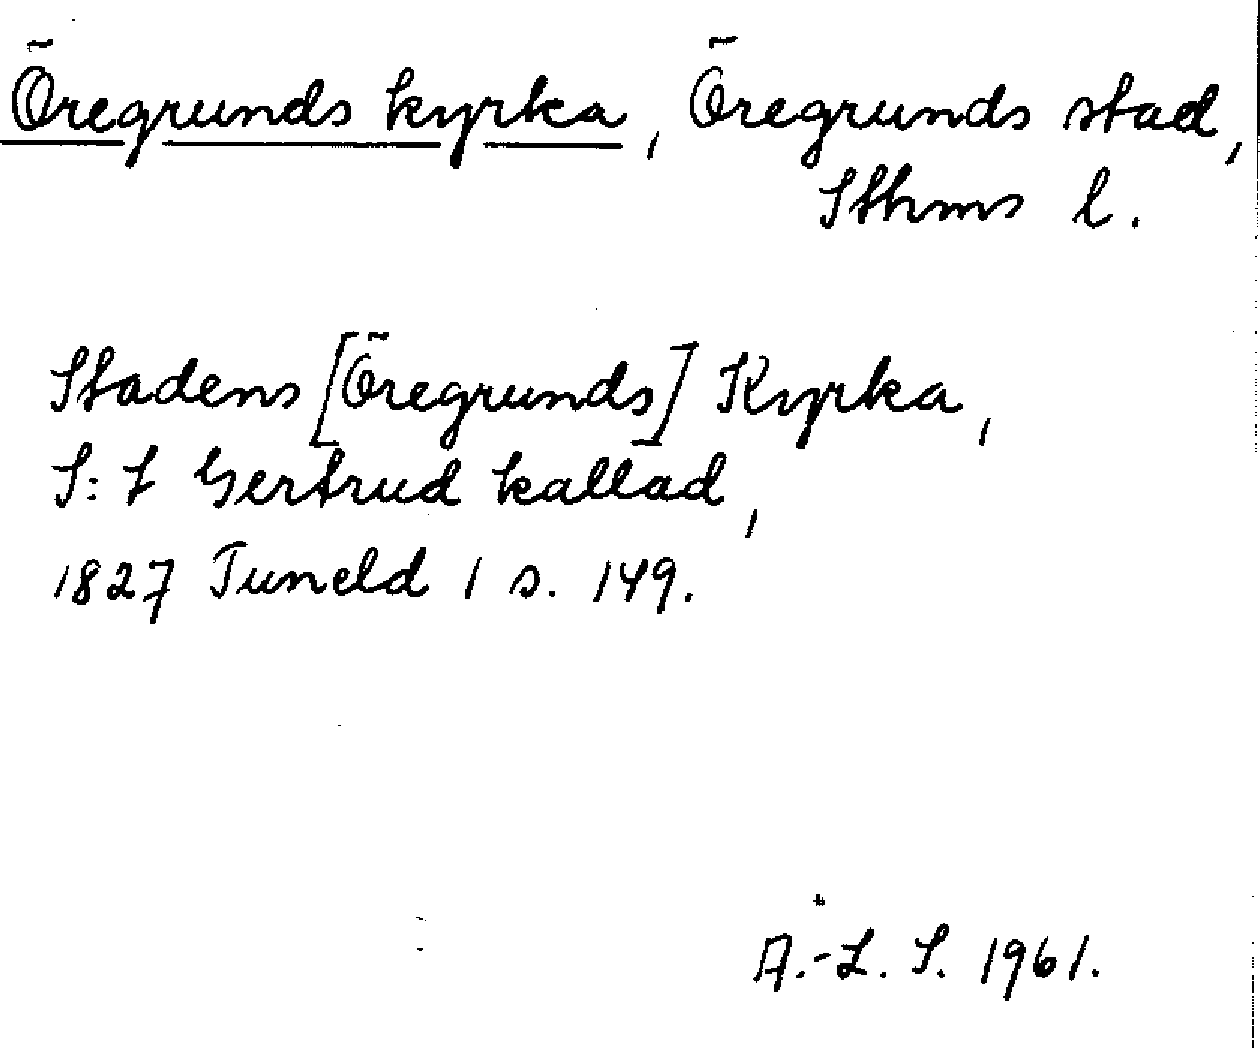 Öregrunds kyrka, Öregrunds stad,
Sthms l.
Stadens [Öregrunds] Kyrka,
S:t Gertrud kallad,
1827 Tuneld 1 s. 149.
A.-L. S. 1961.